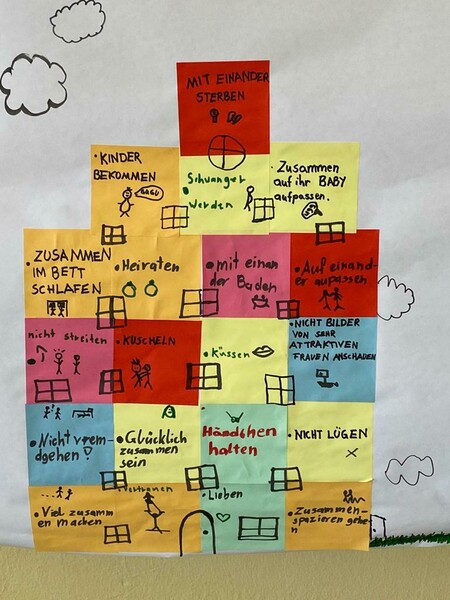 MIT EINANDER
STERBEN
• KINDER
BEKOMMEN
BABY
Schwanger
werden
• Zusammen
auf ihr BABY
aufpassen.
• ZUSAMMEN
IM BETT
SCHLAFEN
• Heiraten
• mit einan
der Baden
• Auf einand-
er aupassen
nicht streiten
• KUSCHELN
• Küssen
• NICHT BILDER
VON SEHR
ATTRAKTIVEN
FRAUEN ANSCHAUEN
• Nicht vrem-
dgehen!
• Glücklich
zusammen
sein
Händchen
halten
• NICHT LÜGEN
• Viel zusamm
en machen
Vertrauen
• Lieben
• Zusammen-
spazieren gehe
n